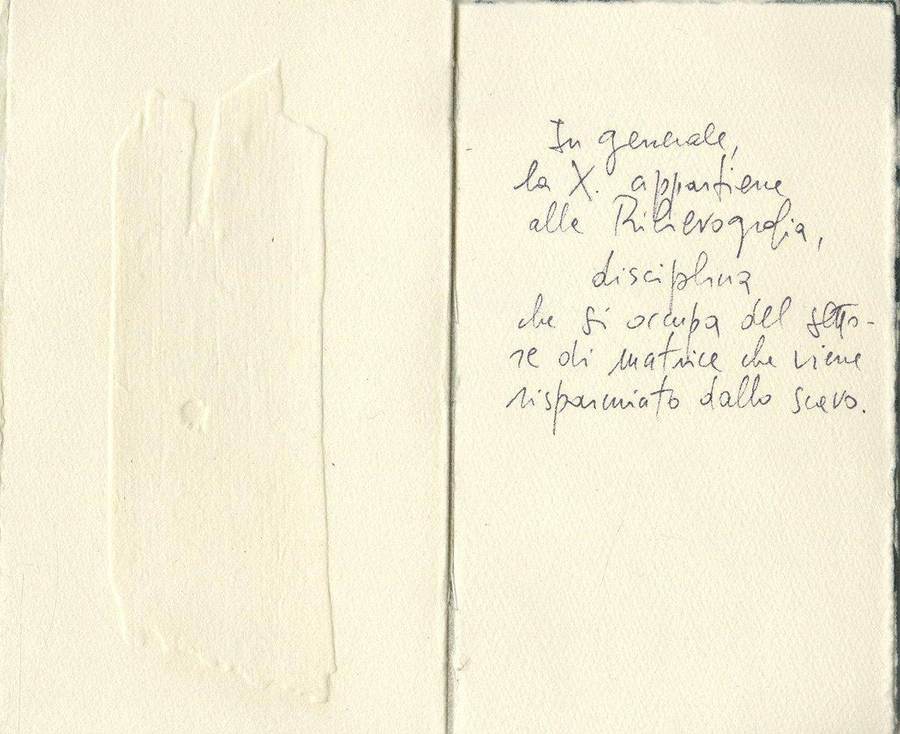 In generale,
la X. appartiene
alla Rilievografia,
disciplina
che si occupa del setto-
re di matrice che viene
risparmiato dallo scavo.